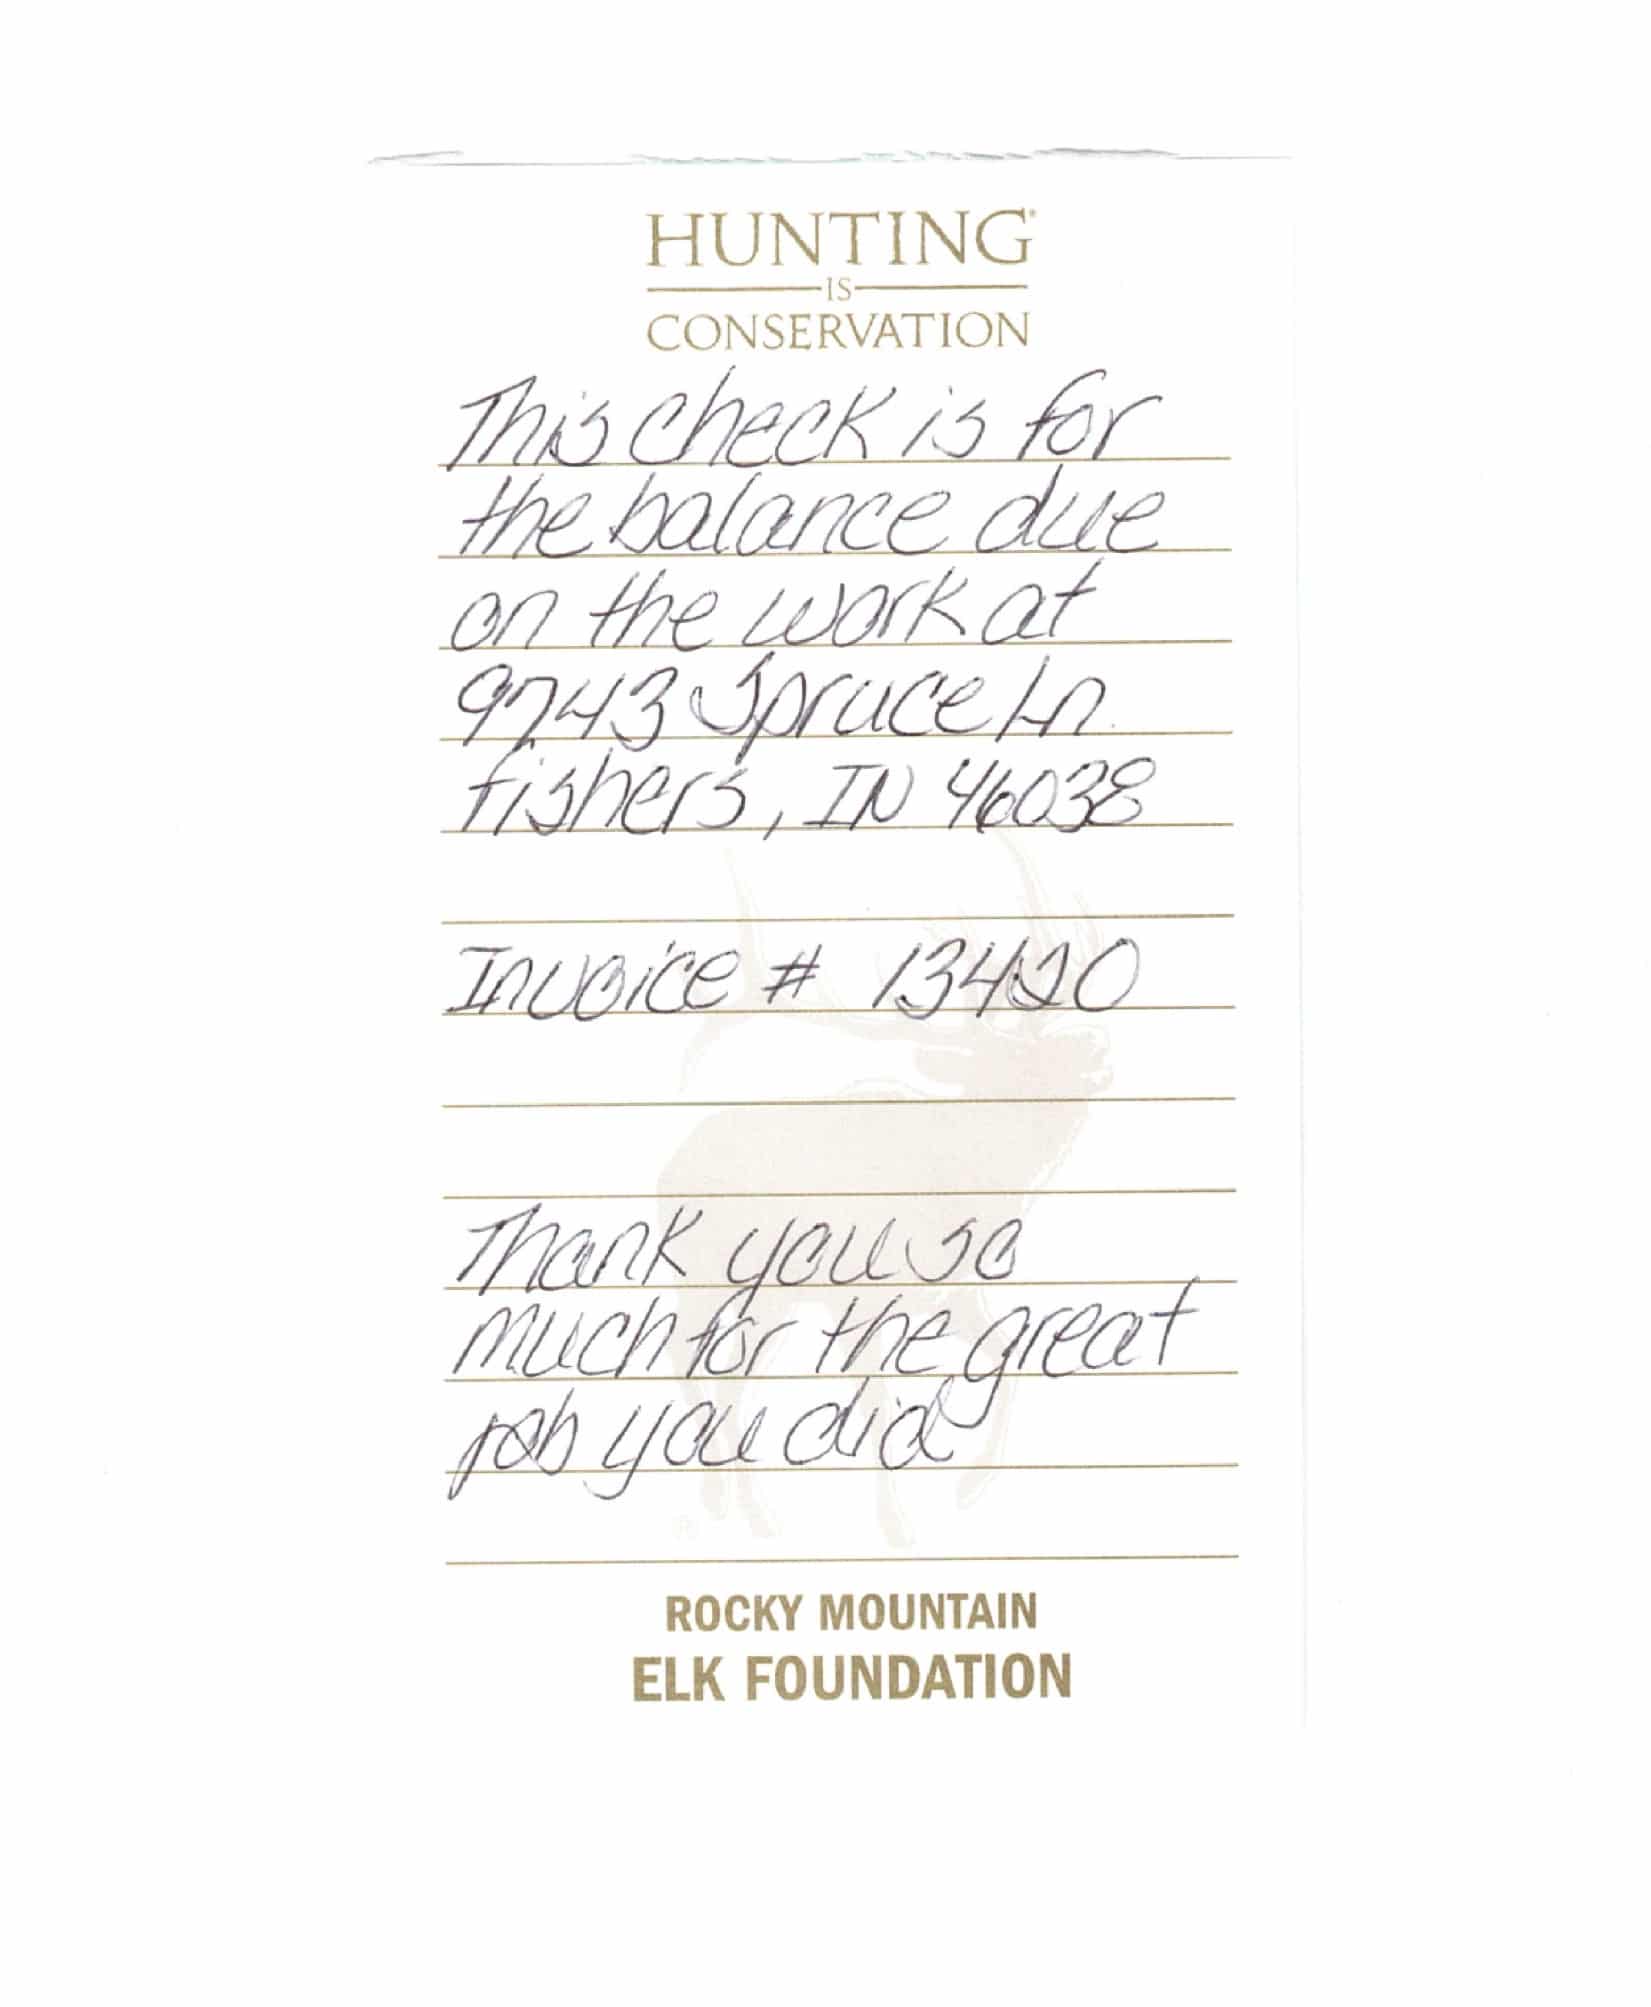 HUNTING®
IS
CONSERVATION
This check is for
the balance due
on the work at
9743 Spruce Ln.
fishers, IN 46038
Invoice #
Thank you so
much for the great
job you did
®
ROCKY MOUNTAIN
ELK FOUNDATION